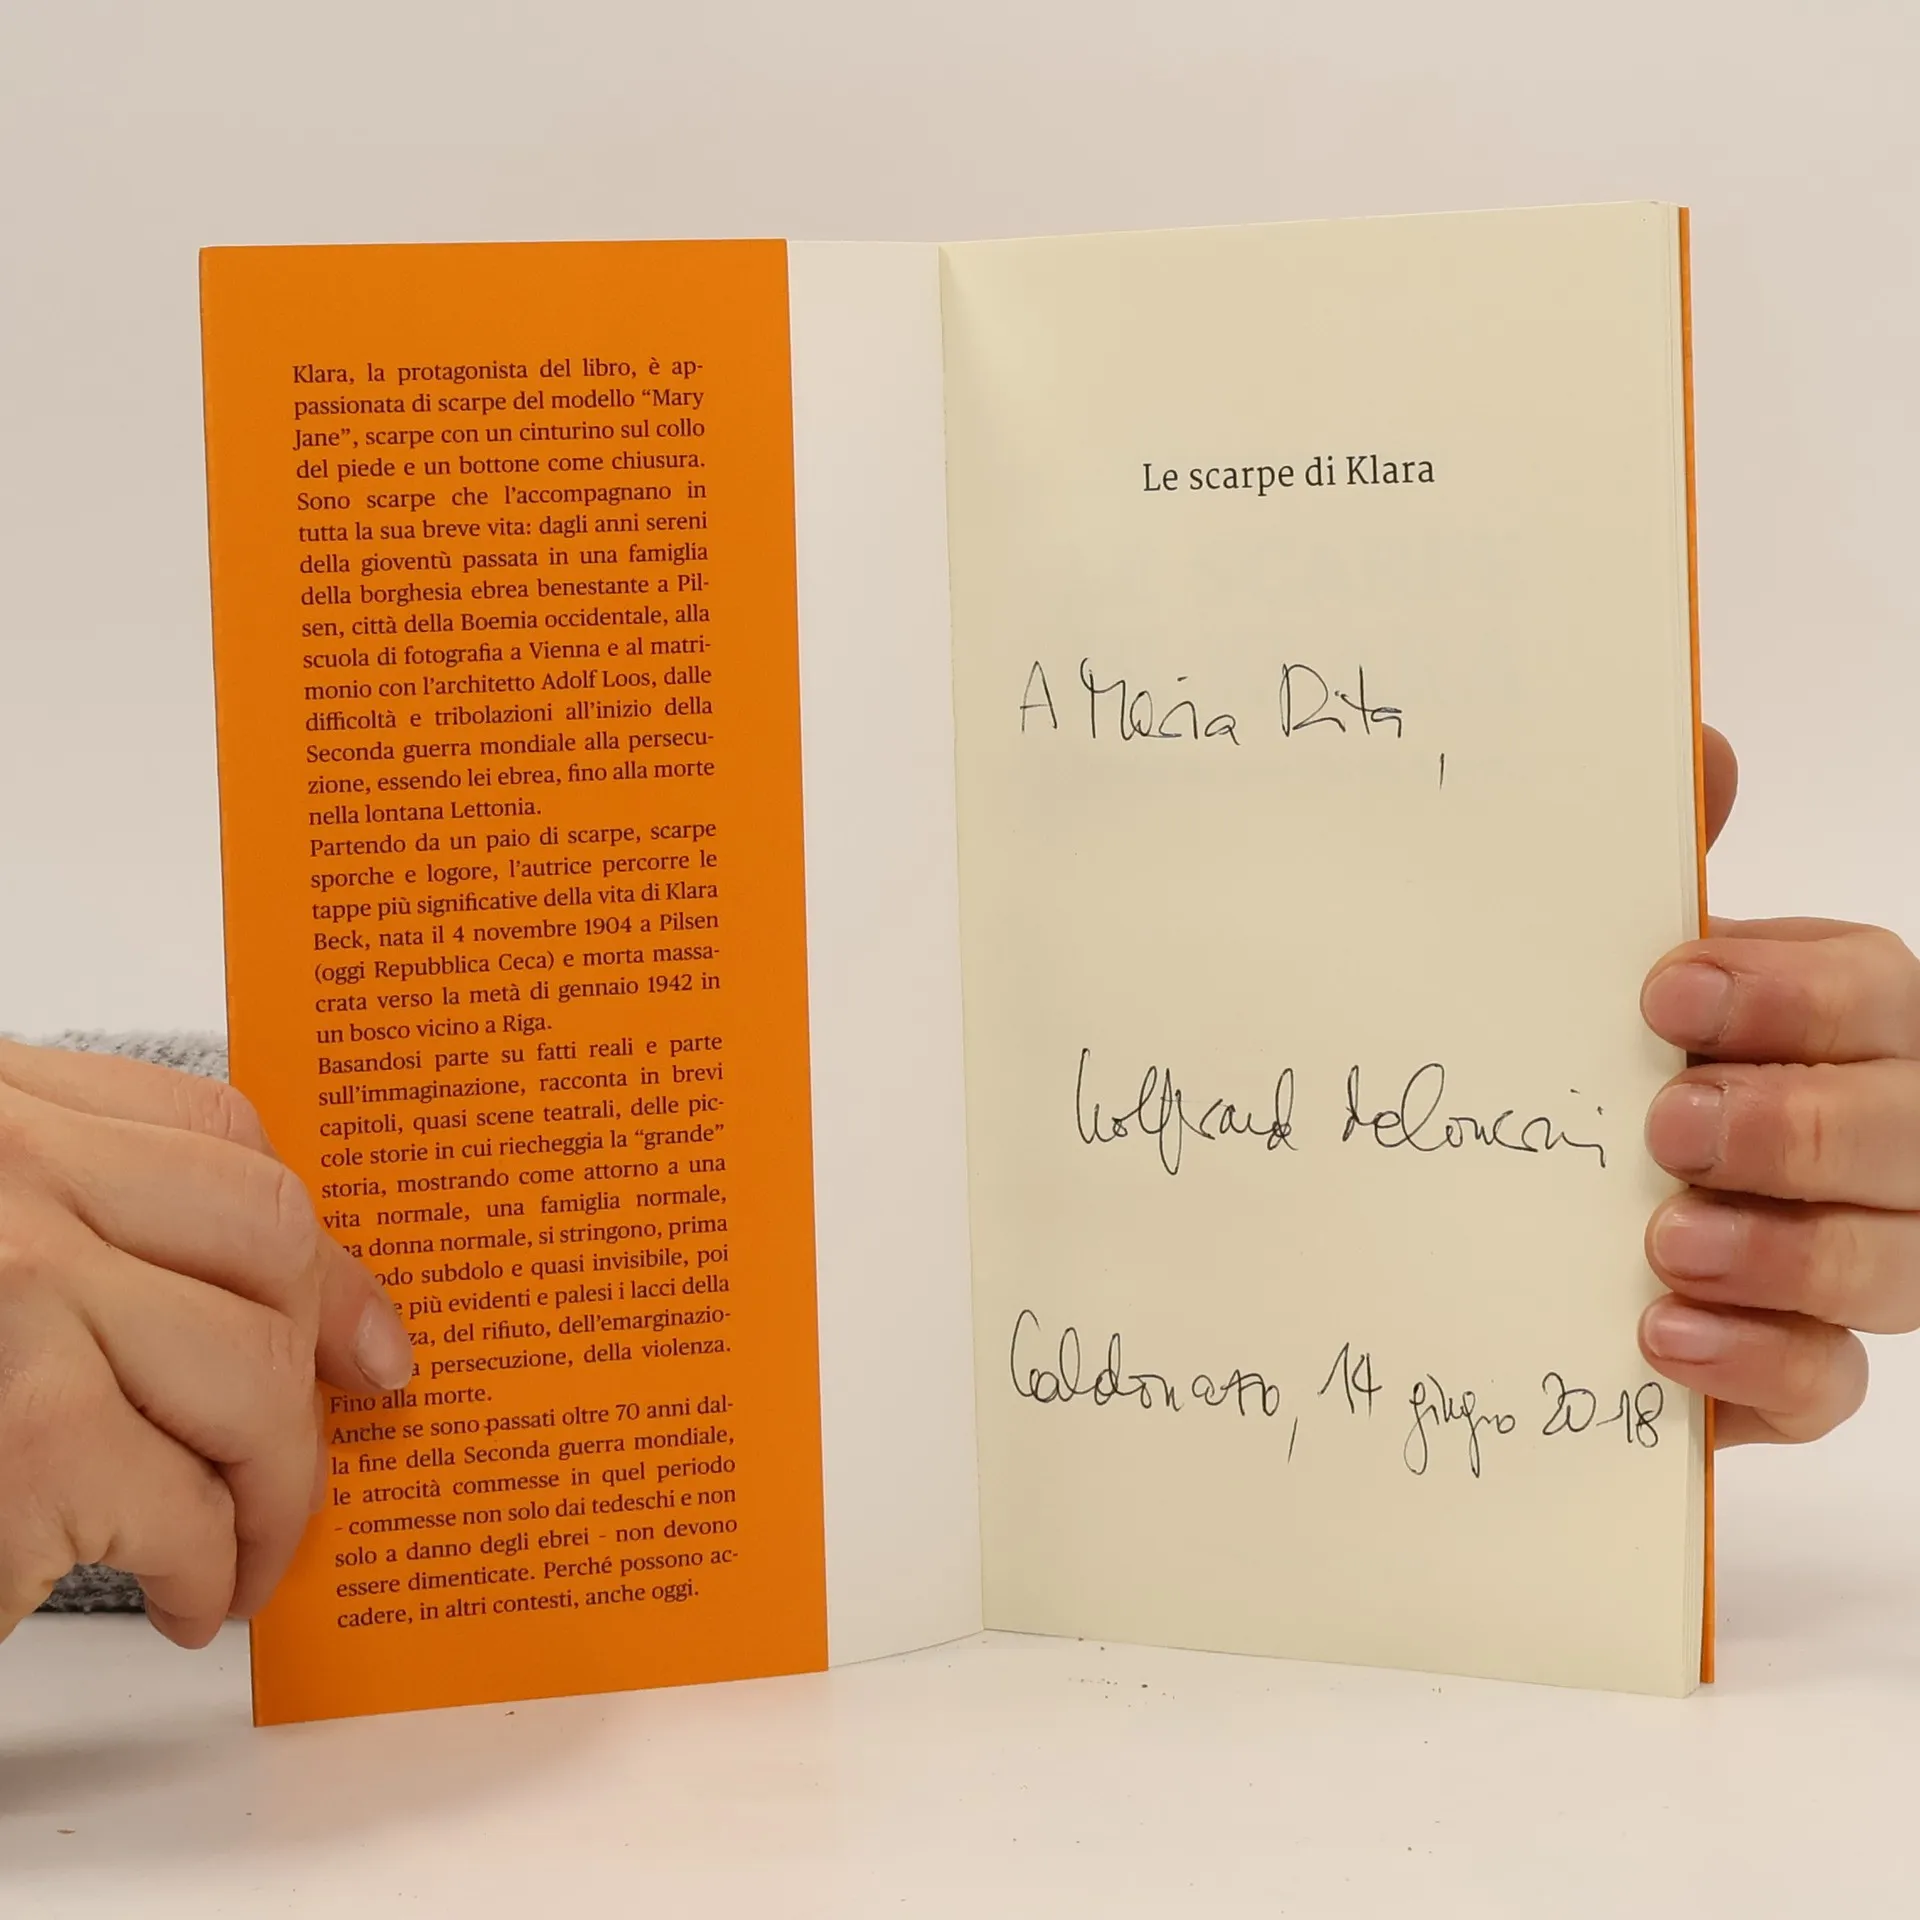 Klara, la protagonista del libro, è ap-
passionata di scarpe del modello “Mary
Jane”, scarpe con un cinturino sul collo
del piede e un bottone come chiusura.
Sono scarpe che l’accompagnano in
tutta la sua breve vita: dagli anni sereni
della gioventù passata in una famiglia
della borghesia ebrea benestante a Pil-
sen, città della Boemia occidentale, alla
scuola di fotografia a Vienna e al matri-
monio con l’architetto Adolf Loos, dalle
difficoltà e tribolazioni all’inizio della
Seconda guerra mondiale alla persecu-
zione, essendo lei ebrea, fino alla morte
nella lontana Lettonia.
Partendo da un paio di scarpe, scarpe
sporche e logore, l’autrice percorre le
tappe più significative della vita di Klara
Beck, nata il 4 novembre 1904 a Pilsen
(oggi Repubblica Ceca) e morta massa-
crata verso la metà di gennaio 1942 in
un bosco vicino a Riga.
Basandosi parte su fatti reali e parte
sull’immaginazione, racconta in brevi
capitoli, quasi scene teatrali, delle pic-
cole storie in cui riecheggia la “grande”
storia, mostrando come attorno a una
vita normale, una famiglia normale,
donna normale, si stringono, prima
subdolo e quasi invisibile, poi
più evidenti e palesi i lacci della
del rifiuto, dell’emarginazio-
persecuzione, della violenza.
Fino alla morte.
Anche se sono passati oltre 70 anni dal-
la fine della Seconda guerra mondiale,
le atrocità commesse in quel periodo
- commesse non solo dai tedeschi e non
solo a danno degli ebrei - non devono
essere dimenticate. Perché possono ac-
cadere, in altri contesti, anche oggi.
Le scarpe di Klara
A Maria Rita,
Caldonazzo, 14 giugno 2018